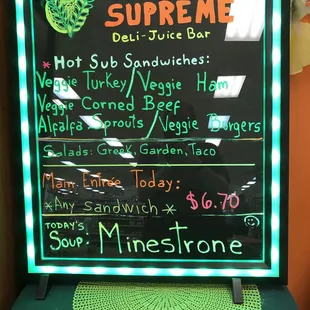 SUPREME
Deli-Juice Bar
* Hot Sub Sandwiches:
Veggie Turkey/Veggie Ham
Veggie Corned Beef
Alfalfa Sprouts/Veggie Burgers
Salads: Greek, Garden, Taco
Main Entrée Today:
*Any Sandwich * $6.70
TODAY'S
Soup: Minestrone